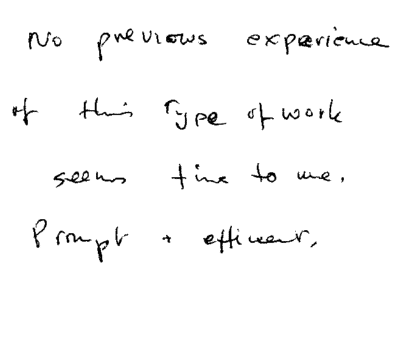 No previous experience
of this Type of work
seems fine to me.
Prompt + efficient,